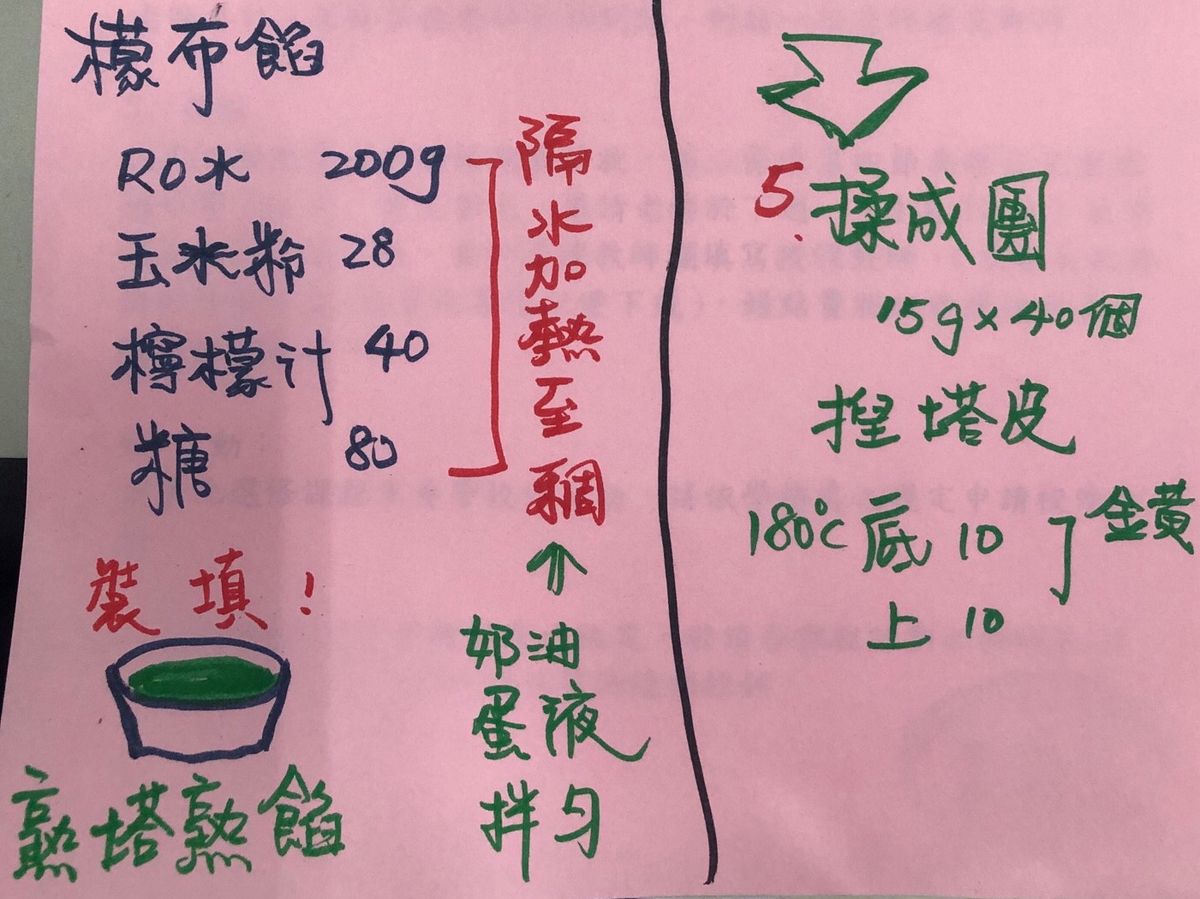 檬布餡
RO水 200g
玉米粉 28
檸檬汁 40
糖 80
隔水加熱至稠
奶油
蛋液
拌勻
裝填!
熟塔熟餡
5.揉成團
15g×40個
捏塔皮
180℃ 底 10
上 10
金黃